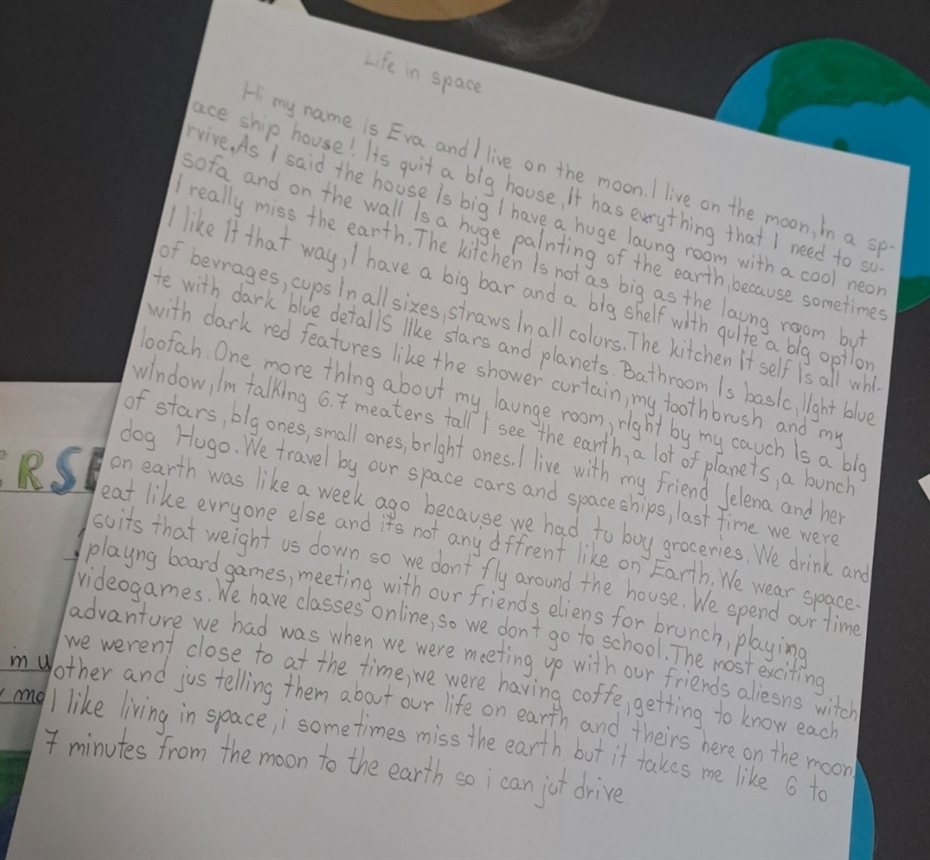 Life in space
Hi my name is Eva and I live on the moon. I live on the moon, in a sp-
ace ship house! Its quit a big house, It has everything that I need to su-
rvive. As I said the house is big I have a huge laung room with a cool neon
sofa and on the wall is a huge painting of the earth, because sometimes
I really miss the earth. The kitchen is not as big as the laung room but
I like it that way, I have a big bar and a big shelf with quite a big option
of bevrages, cups in all sizes, straws in all colurs. The kitchen it self is all whi-
te with dark blue details like stars and planets. Bathroom is basic, light blue
with dark red features like the shower curtain, my toothbrush and my
loofah. One more thing about my launge room, right by my cauch is a big
window, Im talking 6.7 meaters tall I see the earth, a lot of planets, a bunch
of stars, big ones, small ones, bright ones. I live with my friend Jelena and her
dog Hugo. We travel by our space cars and spaceships, last time we were
on earth was like a week ago because we had to buy groceries. We drink and
eat like evryone else and it's not any diffrent like on Earth. We wear space-
suits that weight us down so we don't fly around the house. We spend our time
playng board games, meeting with our friends eliens for brunch, playing
videogames. We have classes online, so we don't go to school. The most exciting
advanture we had was when we were meeting up with our friends aliesns witch
we werent close to at the time, we were having coffe, getting to know each
other and jus telling them about our life on earth and theirs here on the moon.
I like living in space, i sometimes miss the earth but it takes me like 6 to
7 minutes from the moon to the earth so i can jut drive.
RSE
in